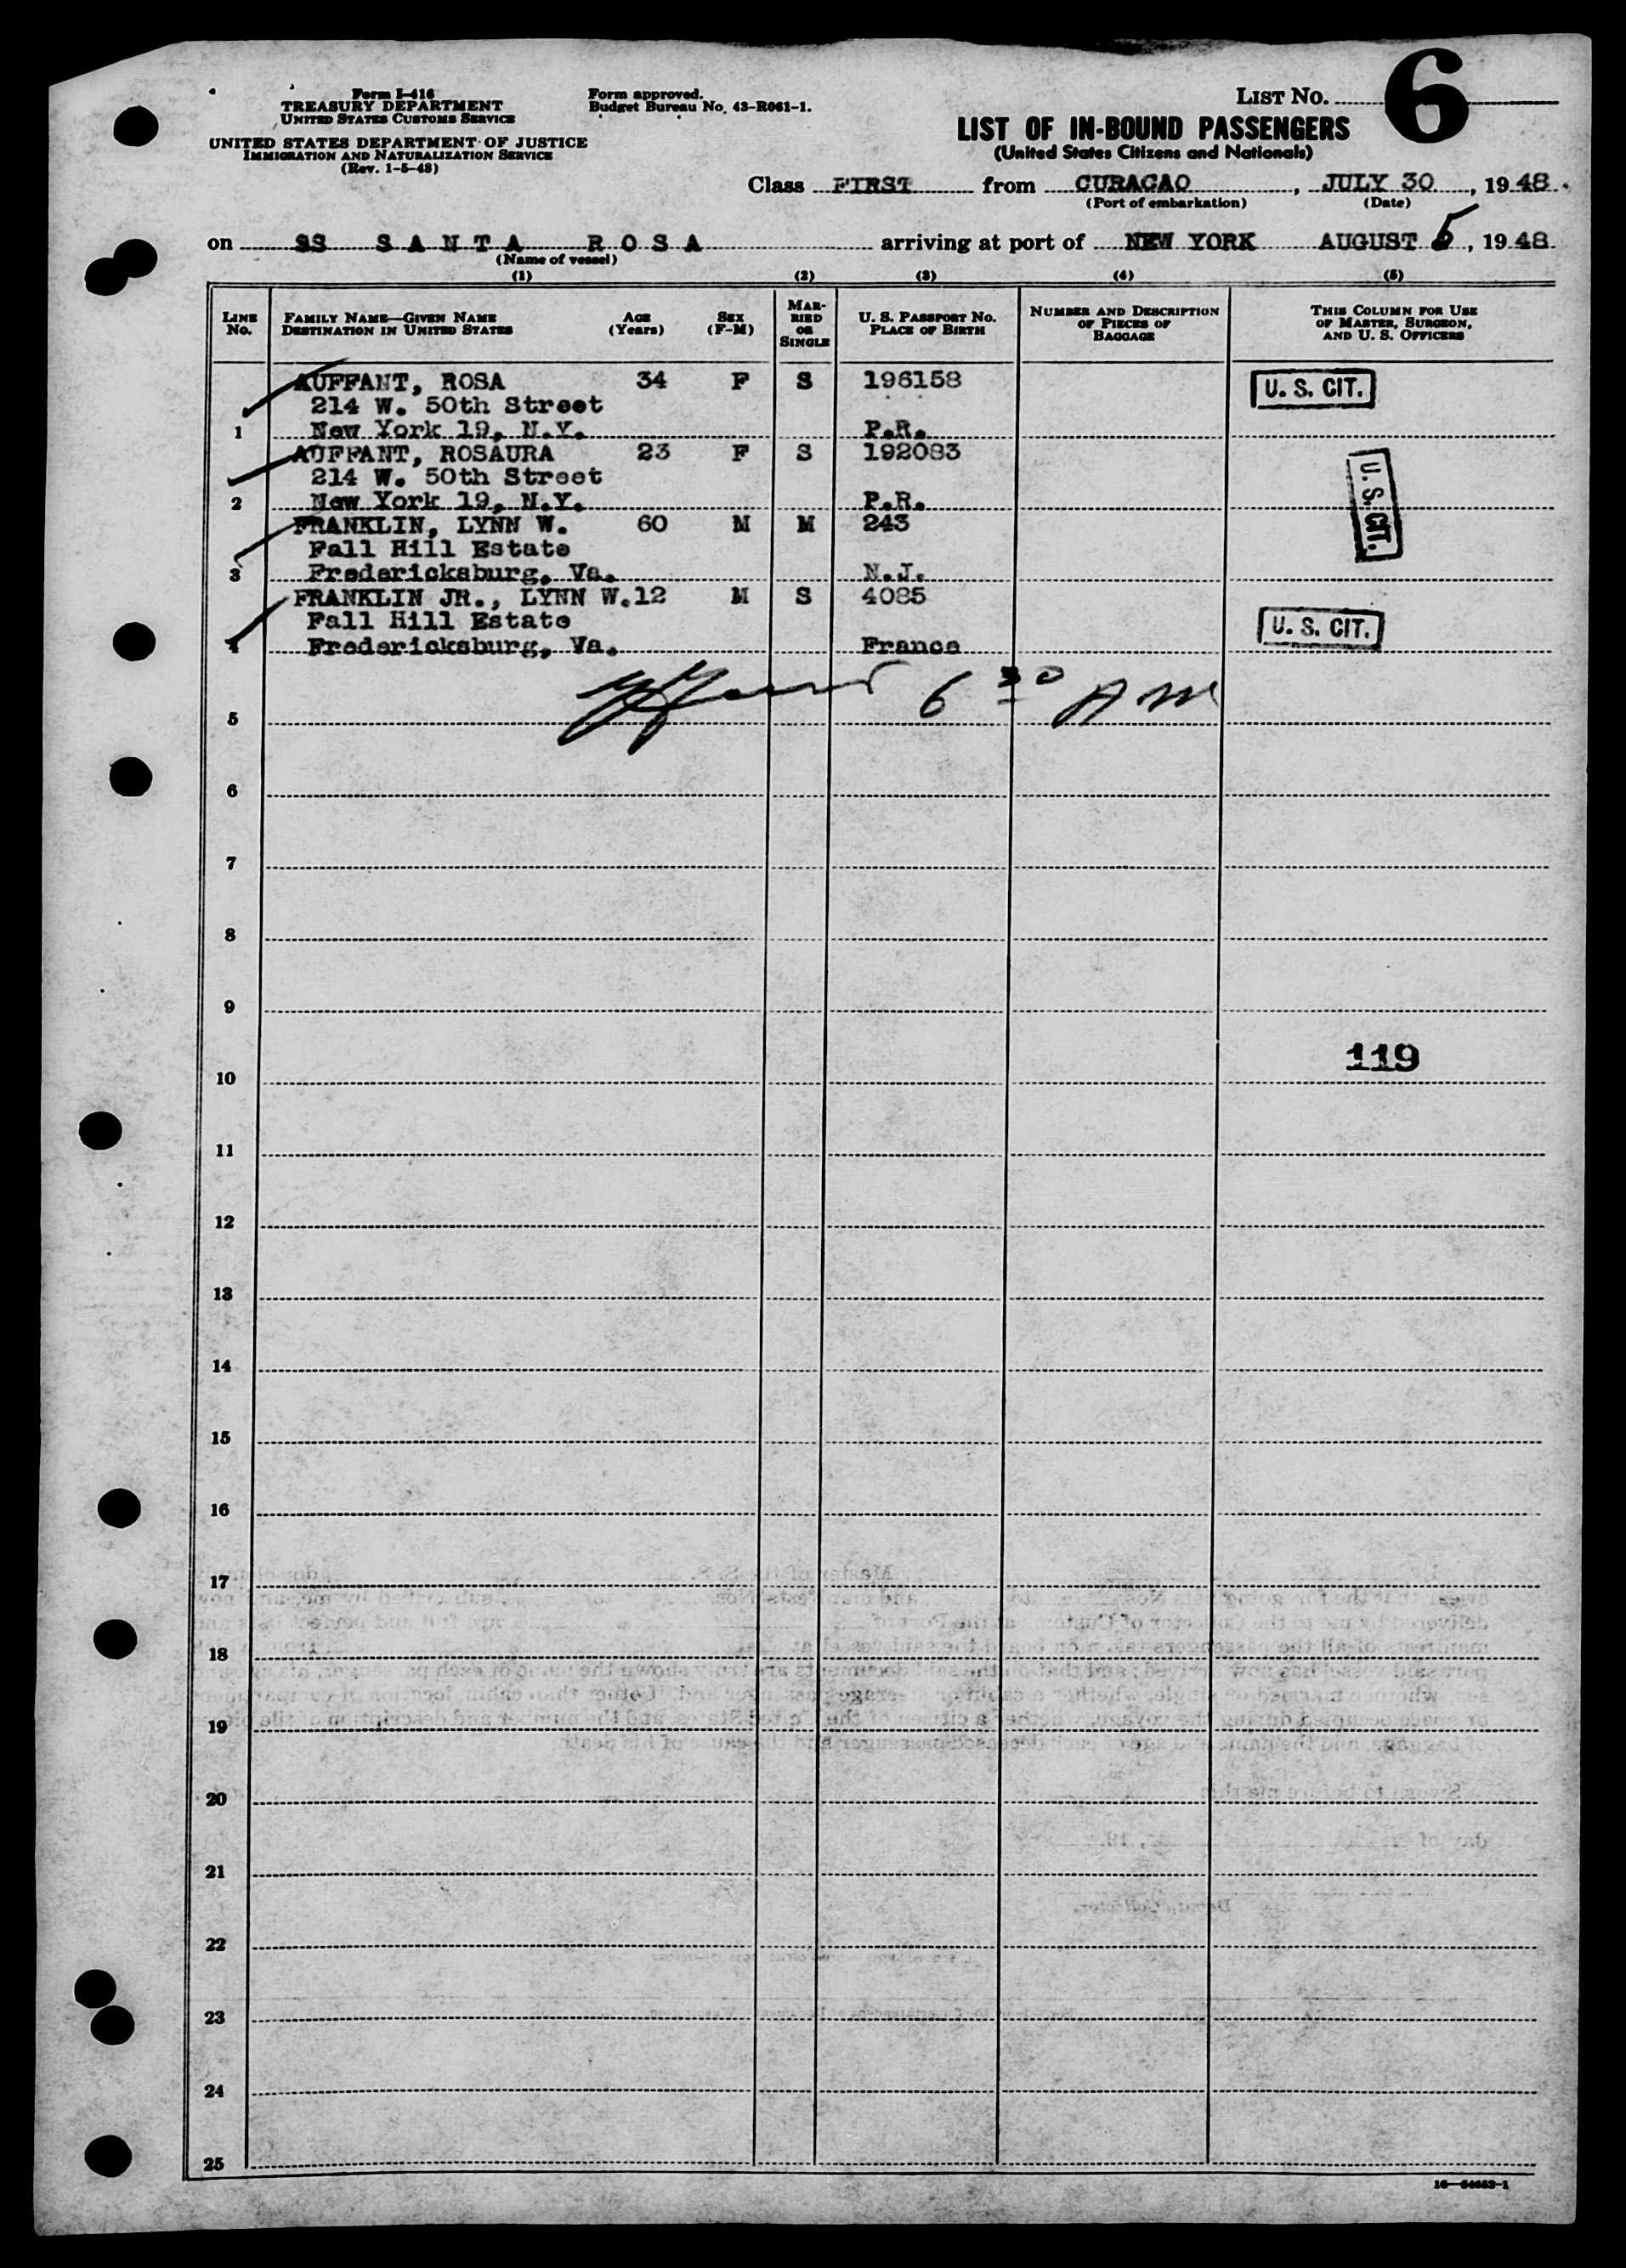 Form I-416
TREASURY DEPARTMENT
UNITED STATES CUSTOMS SERVICE
UNITED STATES DEPARTMENT OF JUSTICE
IMMIGRATION AND NATURALIZATION SERVICE
(Rev. 1-5-48)
Form approved.
Budget Bureau No. 43-R061-1.
LIST NO. 6
LIST OF IN-BOUND PASSENGERS
(United States Citizens and Nationals)
Class FIRST from CURACAO, JULY 30, 19 48.
(Port of embarkation) (Date)
on SS SANTA ROSA arriving at port of NEW YORK AUGUST 5, 19 48
(Name of vessel)
(1) (2) (3) (4) (5)
LINE NO. FAMILY NAME—GIVEN NAME DESTINATION IN UNITED STATES AGE (Years) SEX (F-M) MARRIED OR SINGLE U. S. PASSPORT NO. PLACE OF BIRTH NUMBER AND DESCRIPTION OF PIECES OF BAGGAGE THIS COLUMN FOR USE OF MASTER, SURGEON, AND U. S. OFFICERS
AUFFANT, ROSA 34 F S 196158 U. S. CIT.
214 W. 50th Street
1 New York 19, N.Y. P.R.
AUFFANT, ROSAURA 23 F S 192083 U. S. CIT.
214 W. 50th Street
2 New York 19, N.Y. P.R.
FRANKLIN, LYNN W. 60 M M 243
Fall Hill Estate
3 Fredericksburg, Va. N.J.
FRANKLIN JR., LYNN W. 12 M S 4085
Fall Hill Estate U. S. CIT.
4 Fredericksburg, Va. France
6 30 AM
5
6
7
8
9
119
10
11
12
13
14
15
16
17
18
19
20
21
22
23
24
25